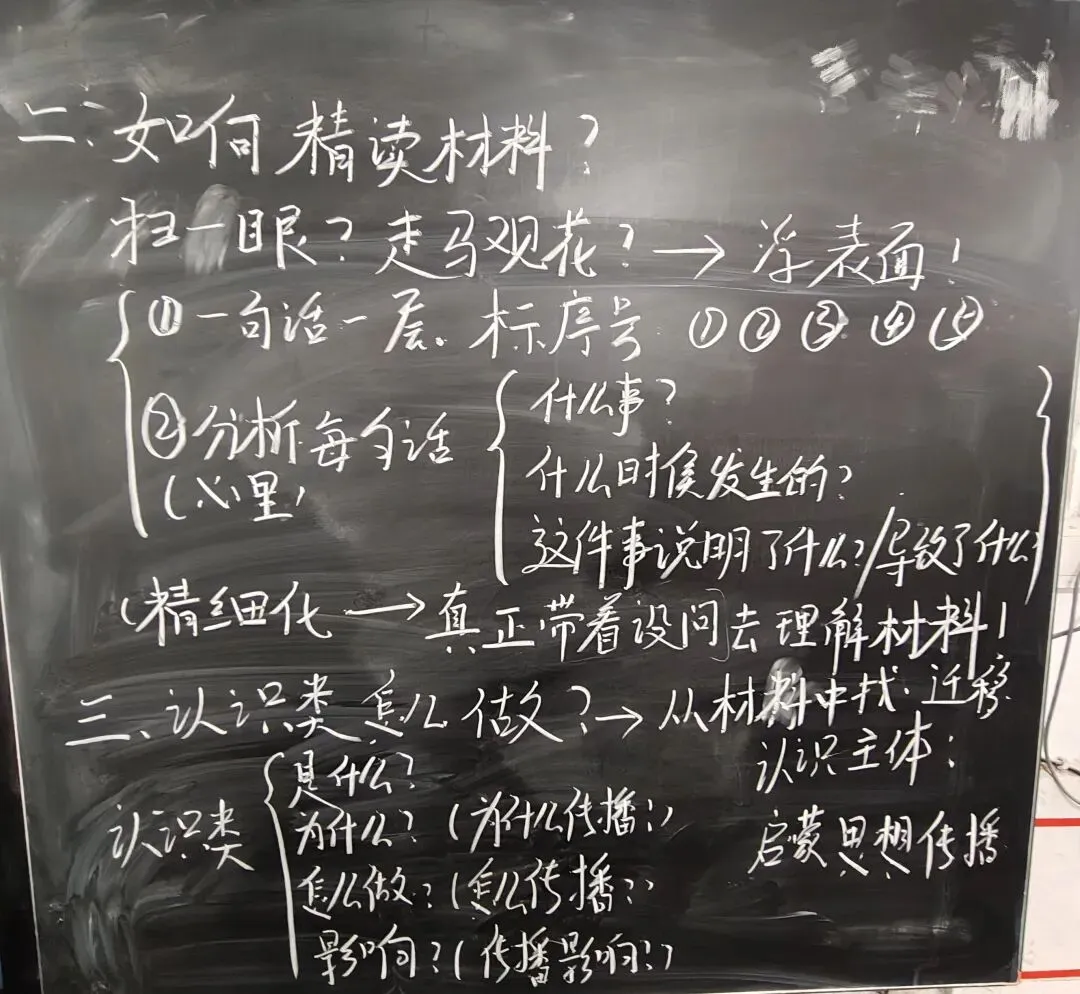 二、如何精读材料？
扫一眼？走马观花？→浮表面！
①一句话一层.标序号 ①②③④⑤
②分析每句话
（心里）
什么事？
什么时候发生的？
这件事说明了什么？/导致了什么
（精细化→真正带着设问去理解材料！
三、认识类怎么做？→从材料中找.迁移
认识主体：
启蒙思想传播
认识类
是什么？
为什么？（为什么传播？）
怎么做？（怎么传播？）
影响？（传播影响？）